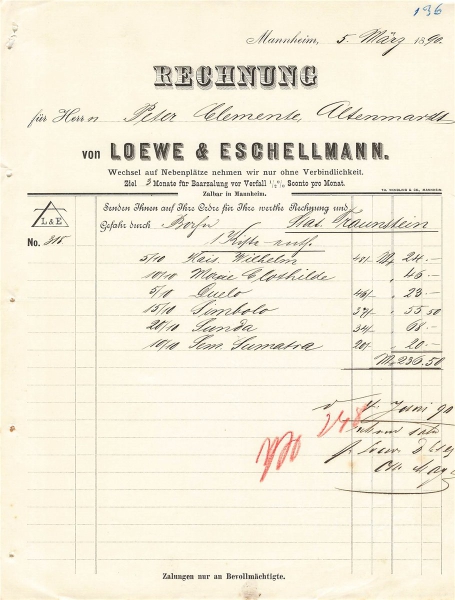 136
Mannheim, 5. März 1890.
RECHNUNG
für Herrn Peter Clemente, Altenmarkt
von LOEWE & ESCHELLMANN.
Wechsel auf Nebenplätze nehmen wir nur ohne Verbindlichkeit.
Ziel 3 Monate für Baarzalung vor Verfall Sconto pro Monat.
Zalbar in Mannheim.
L&E
Senden Ihnen auf Ihre Ordre für Ihre werthe Rechnung und
Gefahr durch Stat. Traunstein
No. 315 1 Kiste
5/10 Kais. Wilhelm M 24.-
10/10 Clothilde 46.-
5/10 Duelo 46/- 23.-
15/10 Simbolo 37/- 55.50
20/10 Sunda 34/- 68.-
10/10 Sumatra 20/- 20.-
M 236.50
Juni 90
248
Zalungen nur an Bevollmächtigte.